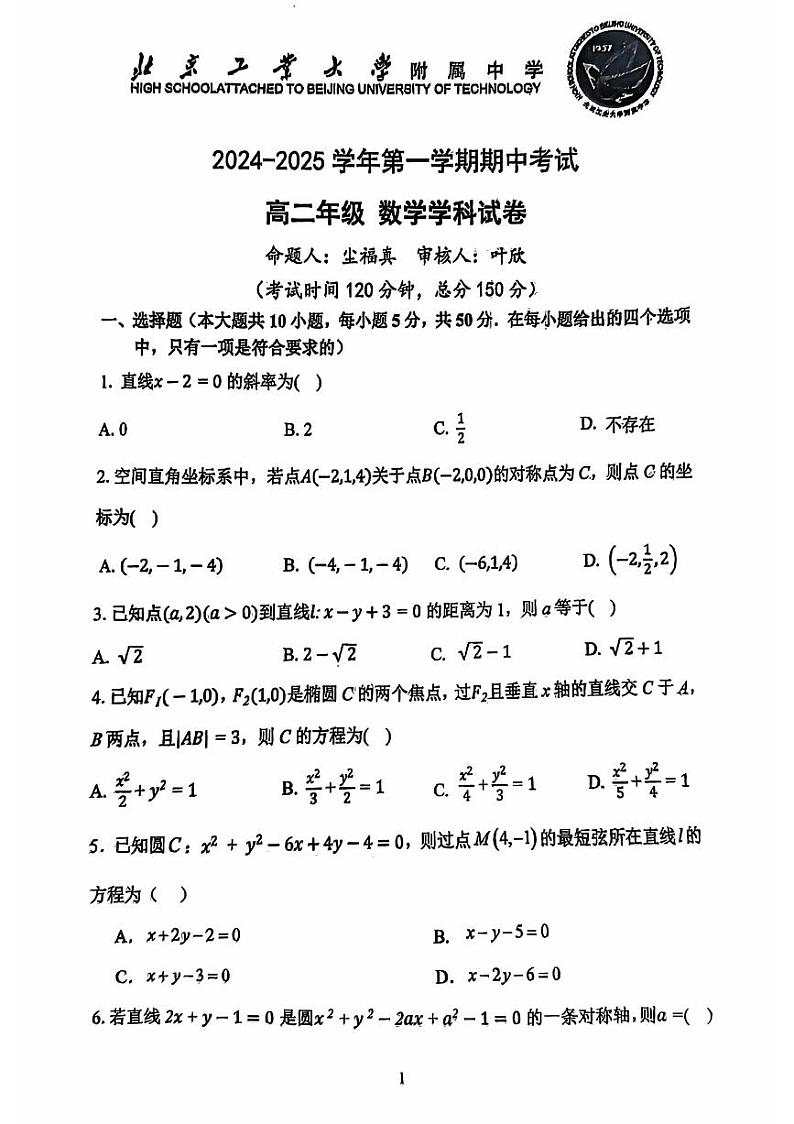 北京工业大学附属中学
HIGH SCHOOLATTACHED TO BEIJING UNIVERSITY OF TECHNOLOGY
1957
2024-2025 学年第一学期期中考试
高二年级 数学学科试卷
命题人：尘福真 审核人：叶欣
（考试时间 120 分钟，总分 150 分）
一、选择题（本大题共 10 小题，每小题 5 分，共 50 分．在每小题给出的四个选项
中，只有一项是符合要求的）
1. 直线x − 2 = 0 的斜率为( )
A. 0 B. 2 C. 1/2 D. 不存在
2. 空间直角坐标系中，若点A(−2,1,4)关于点B(−2,0,0)的对称点为 C，则点 C 的坐
标为( )
A. (−2, − 1, − 4) B. (−4, − 1, − 4) C. (−6,1,4) D. (−2,1/2,2)
3. 已知点(a, 2)(a > 0)到直线l: x − y + 3 = 0 的距离为 1，则 a 等于( )
A. √2 B. 2 − √2 C. √2 − 1 D. √2 + 1
4. 已知F₁( − 1,0)，F₂(1,0)是椭圆 C 的两个焦点，过F₂且垂直 x 轴的直线交 C 于 A，
B 两点，且|AB| = 3，则 C 的方程为( )
A. x²/2 + y² = 1 B. x²/3 + y²/2 = 1 C. x²/4 + y²/3 = 1 D. x²/5 + y²/4 = 1
5. 已知圆 C：x² + y² − 6x + 4y − 4 = 0，则过点 M(4,−1) 的最短弦所在直线 l 的
方程为（ ）
A. x+2y−2=0 B. x−y−5=0
C. x+y−3=0 D. x−2y−6=0
6. 若直线 2x + y − 1 = 0 是圆x² + y² − 2ax + a² − 1 = 0 的一条对称轴，则a =( )
1